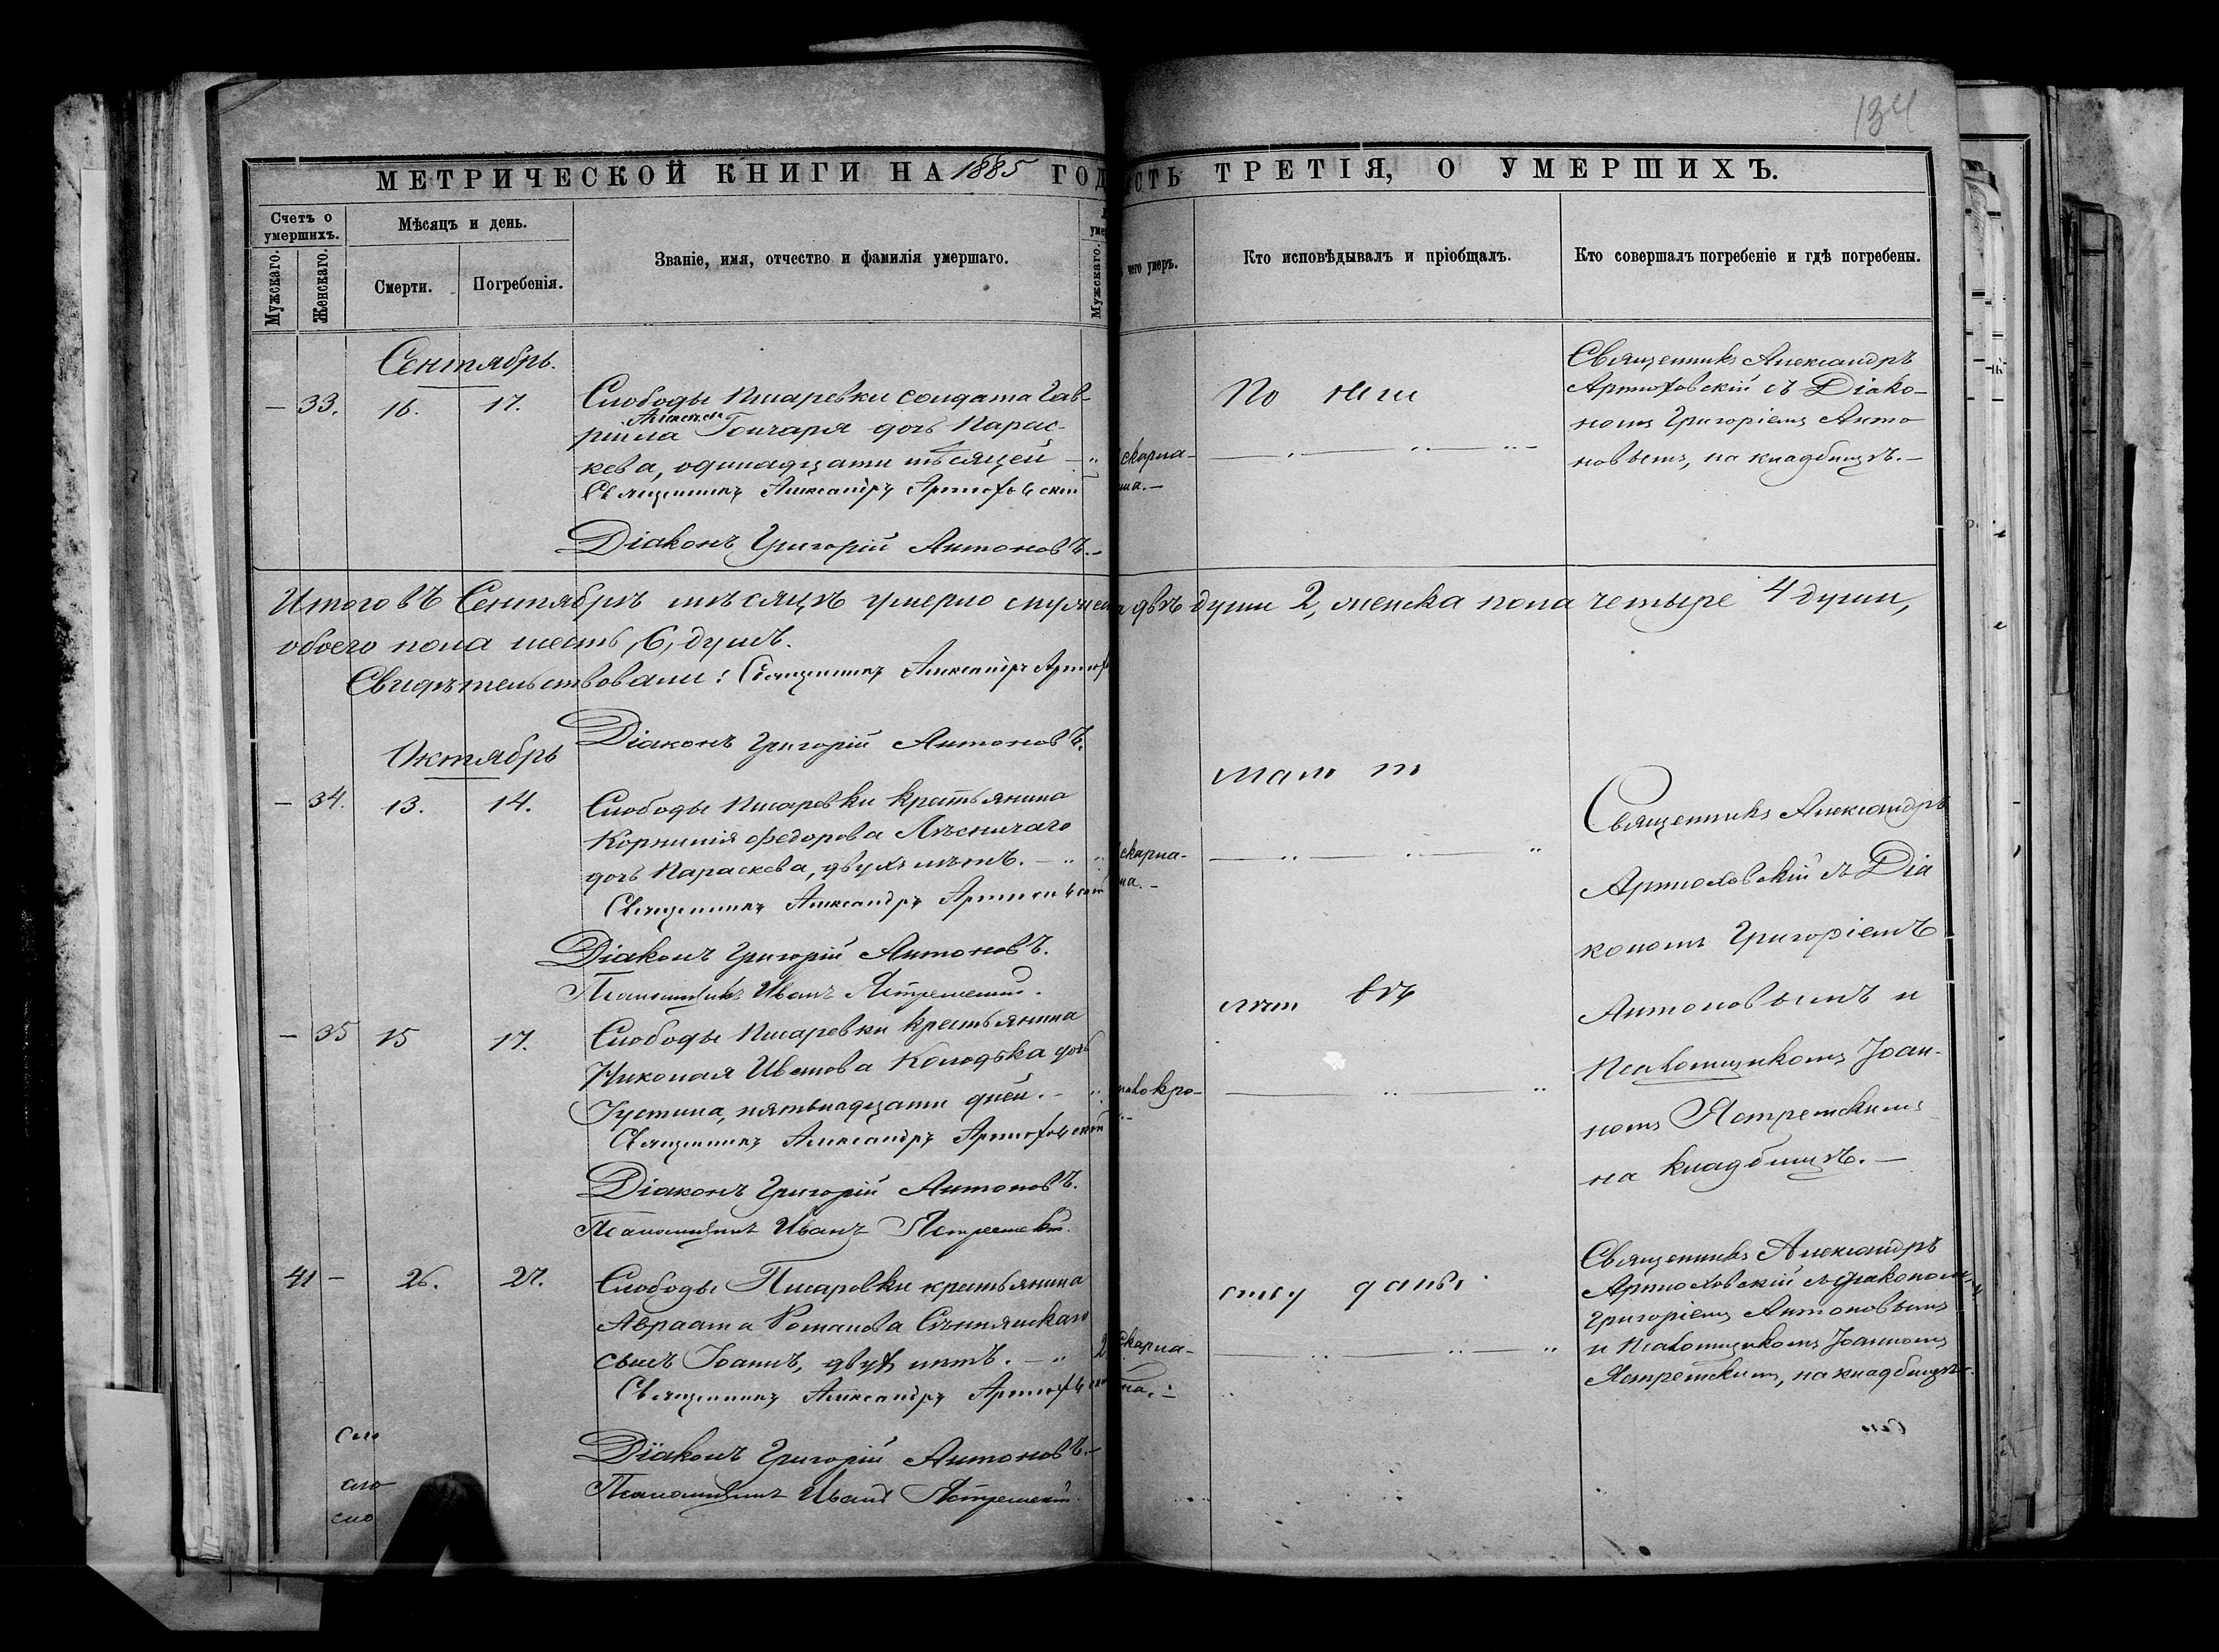 134
МЕТРИЧЕСКОЙ КНИГИ НА 1885 ГОД
СТЬ ТРЕТІЯ, О УМЕРШИХЪ.
Счетъ о умершихъ.
Мужскаго.
Женскаго.
Мѣсяцъ и день.
Смерти.
Погребенія.
Званіе, имя, отчество и фамилія умершаго.
Мужскаго.
чего умеръ.
Кто исповѣдывалъ и пріобщалъ.
Кто совершалъ погребеніе и гдѣ погребены.
Сентябрь.
— 33. 16. 17.
Слободы Писаревки солдата Гав-
риила Гончаря дочь Парас-
кева, одинадцати мѣсяцей —
Священникъ Александръ Артюховскій
Діаконъ Григорій Антоновъ.—
скарла-
на.—
По
Священникъ Александръ
Артюховскій съ Діако-
номъ Григоріемъ Анто
новымъ, на кладбищѣ.—
Итого въ Сентябрѣ мѣсяцѣ умерло мужска двѣ души 2, женска пола четыре 4 души,
обоего пола шесть, 6, душъ.
Свидѣтельствовали: Священникъ Александръ Артюх
Діаконъ Григорій Антоновъ.
Октябрь
— 34. 13. 14.
Слободы Писаревки крестьянина
Корнилія Федорова Лѣсничаго
дочь Параскева, двухъ лѣтъ. —
Священникъ Александръ
Діаконъ Григорій Антоновъ.
Псаломщикъ Иванъ Ястремскій.
скарла-
на.—
мало т
Священникъ Александръ
Артюховскій съ Діа
кономъ Григоріемъ
Антоновымъ и
Псаломщикомъ Іоан-
номъ Ястремскимъ
на кладбищѣ.—
— 35 15 17.
Слободы Писаревки крестьянина
Николая Иванова Колодѣка дочь
Іустина, пятьнадцати дней. —
Священникъ Александръ Артюховскій
Діаконъ Григорій Антоновъ.
Псаломщикъ Иванъ Ястремскій.
лѣт
41 — 26. 27.
Слободы Писаревки крестьянина
Авраама Романова Сѣнянскаго
сынъ Іоаннъ, двухъ лѣтъ. — 2
Священникъ Александръ Артюховскій
Діаконъ Григорій Антоновъ.—
Псаломщикъ Иванъ Ястремскій.
скарла-
на.—
Священникъ Александръ
Артюховскій съ діакономъ
Григоріемъ Антоновымъ
и Псаломщикомъ Іоанномъ
Ястремскимъ, на кладбищѣ.